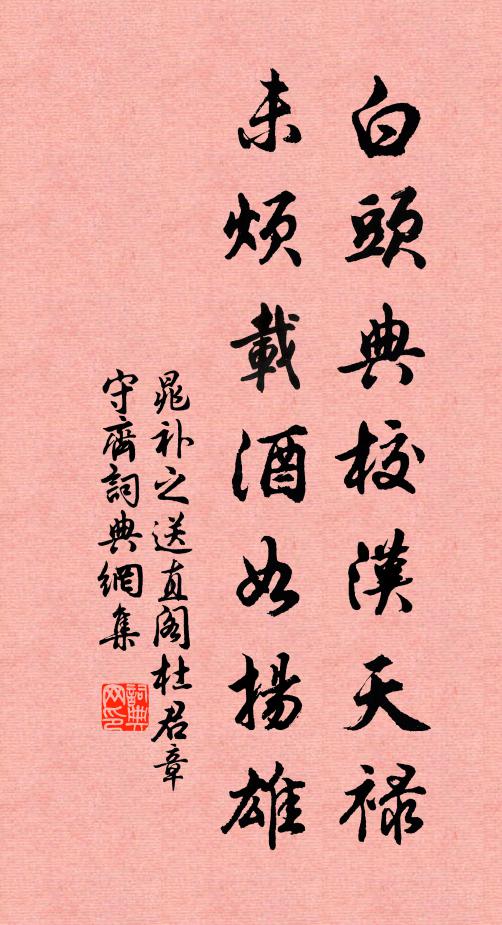 白頭典校漢天禄
未煩載酒如揚雄
晁补之送直阁杜君章
守齊詞典網集
詞典网印